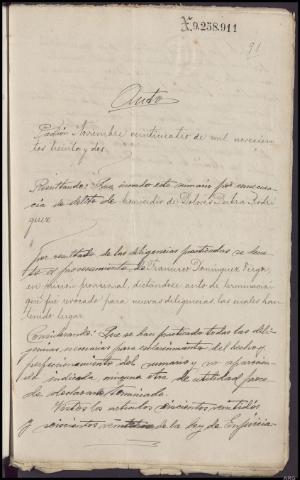 X.9.258.911
91
Auto
Padrón, Noviembre veinticuatro de mil novecien
tos treinta y dos.
Resultando: Que incoado este sumario por consecuen
cia de delito de homicidio de Dolores Rodrí
guez
por resultado de las diligencias practicadas se
el procesamiento de Francisco Dominguez
en provisional, dictándose auto de terminación
que fué revocado para nuevas diligencias las cuales han
tenido lugar.
Considerando: Que se han practicado todas las dili
gencias necesarias para esclarecimiento del hecho y
perfeccionamiento del sumario y no aparecien
do indicada ninguna otra de utilidad, proce
de declararle terminado.
Vistos los artículos seiscientos veintidós
y seiscientos de la ley de Enjuicia-